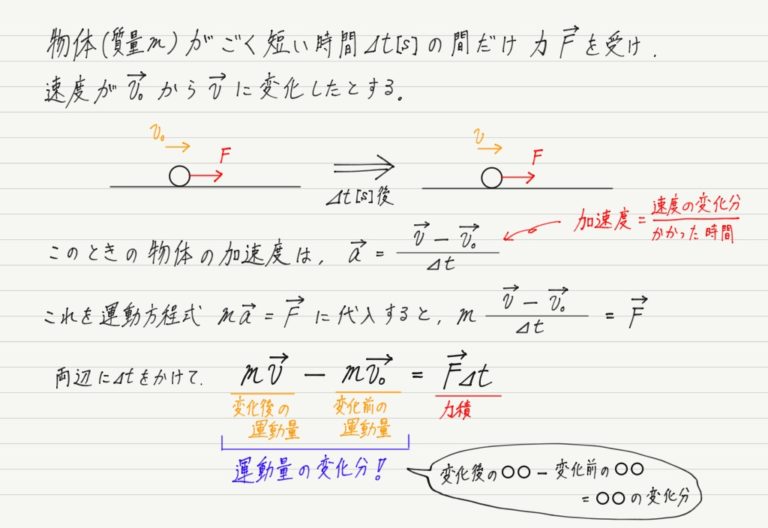 物体(質量m)がごく短い時間Δt[s]の間だけ力F→を受け.
速度がv₀→からv→に変化したとする。
v₀
F
Δt[s]後
v
F
加速度 = 速度の変化分/かかった時間
このときの物体の加速度は, a→ = (v→ − v₀→)/Δt
これを運動方程式 ma→ = F→ に代入すると, m (v→ − v₀→)/Δt = F→
両辺にΔtをかけて. mv→ − mv₀→ = F→Δt
変化後の運動量
変化前の運動量
力積
運動量の変化分!!
変化後の○○ − 変化前の○○
= ○○の変化分